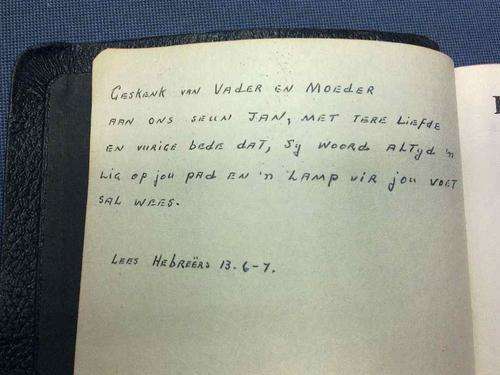 Geskenk van Vader en Moeder
aan ons seun Jan, met tere liefde
en vurige bede dat, Sy woord altyd 'n
lig op jou pad en 'n lamp vir jou voet
sal wees.
Lees Hebreërs 13.6-7.